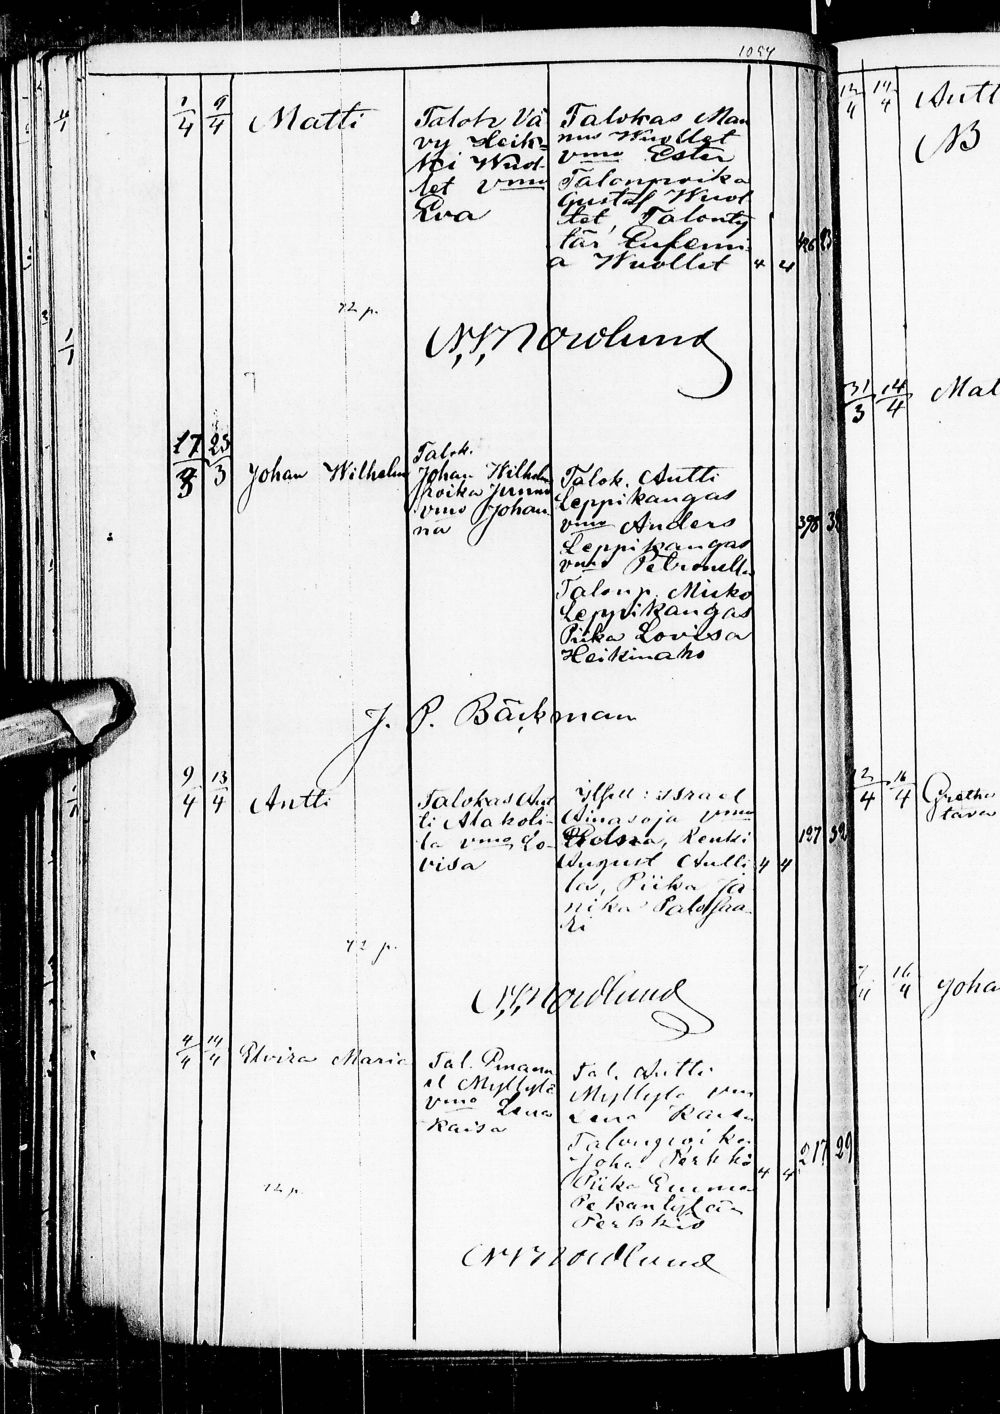 1/4 9/4 Matti
Talok Vä
vy Heik-
ki Wuol-
let vmo
Eva
Talokas Man
nus Wuollet
vmo Ester
Talonpoika
Gustaf Wuol
let, Talonty
tär Eufemi-
a Wuollet 4 4
72 p.
N. I. Nordlund
17/3 23/3 Johan Wilhelm
Talok.
Johan Wilhelm
poika
vmo Johan
na
Talok. Antti
Leppikangas
vmo Anders
Leppikangas
vmo Petronella
Talonp. Misko
Leppikangas
Piika Lovisa
Heikinaho
398 38
J. P. Bäckman
9/4 13/4 Antti
Talokas Ant
ti Alakoti-
la vmo Lo-
visa
Itsell: Israel
Ainasoja vmo
Renki
August Anttі
la, Piika
nika Palosaa
ri
4 4
197 32
72 p.
N. I. Nordlund
4/4 14/4 Elvira Maria
Tal. Emanu
el Myllylä
vmo Lena
Kaisa
Tal. Antti
Myllylä vmo
Lena Kaisa
Talonpoika
Johan Perkkiö
Piika Emma
Pekantytär
Perkkiö
4 4
217 29
72 p.
N I Nordlund
12/4 14/4 Antt
NB
31/3 14/4 Mat
12/4 16/4 Gretha
tava
16/4 Joha